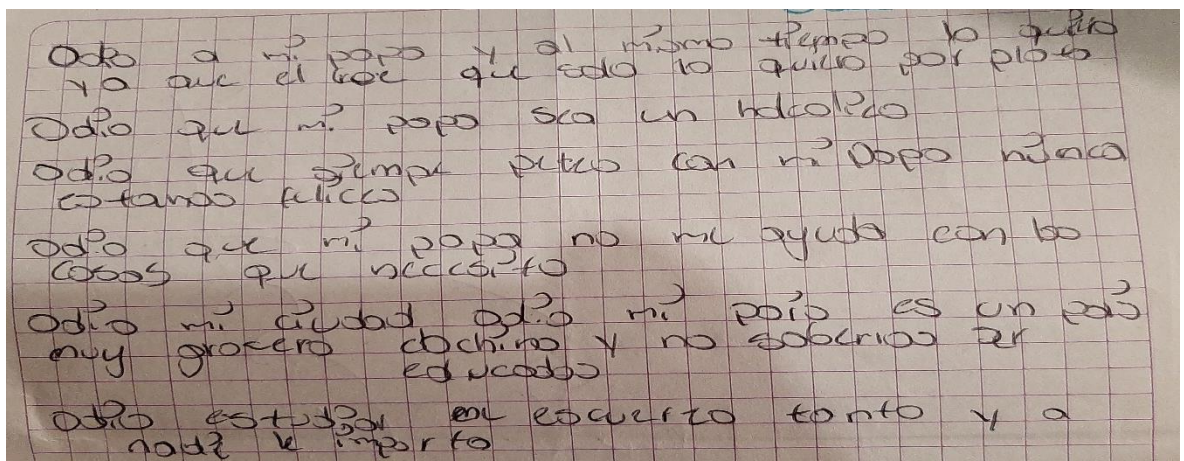 Odio a mi papa y al mismo tiempo lo quiero
ya que el cree que solo lo quiero por plata
Odio que mi papa sea un
Odio que siempre peleo con mi papa nunca
estamos felices
Odio que mi papa no me ayuda con las
cosas que necesito
Odio mi ciudad odio mi país es un país
muy grosero cochino y no sabemos ser
educados
Odio estudiar me esfuerzo tanto y a
nadie le importa